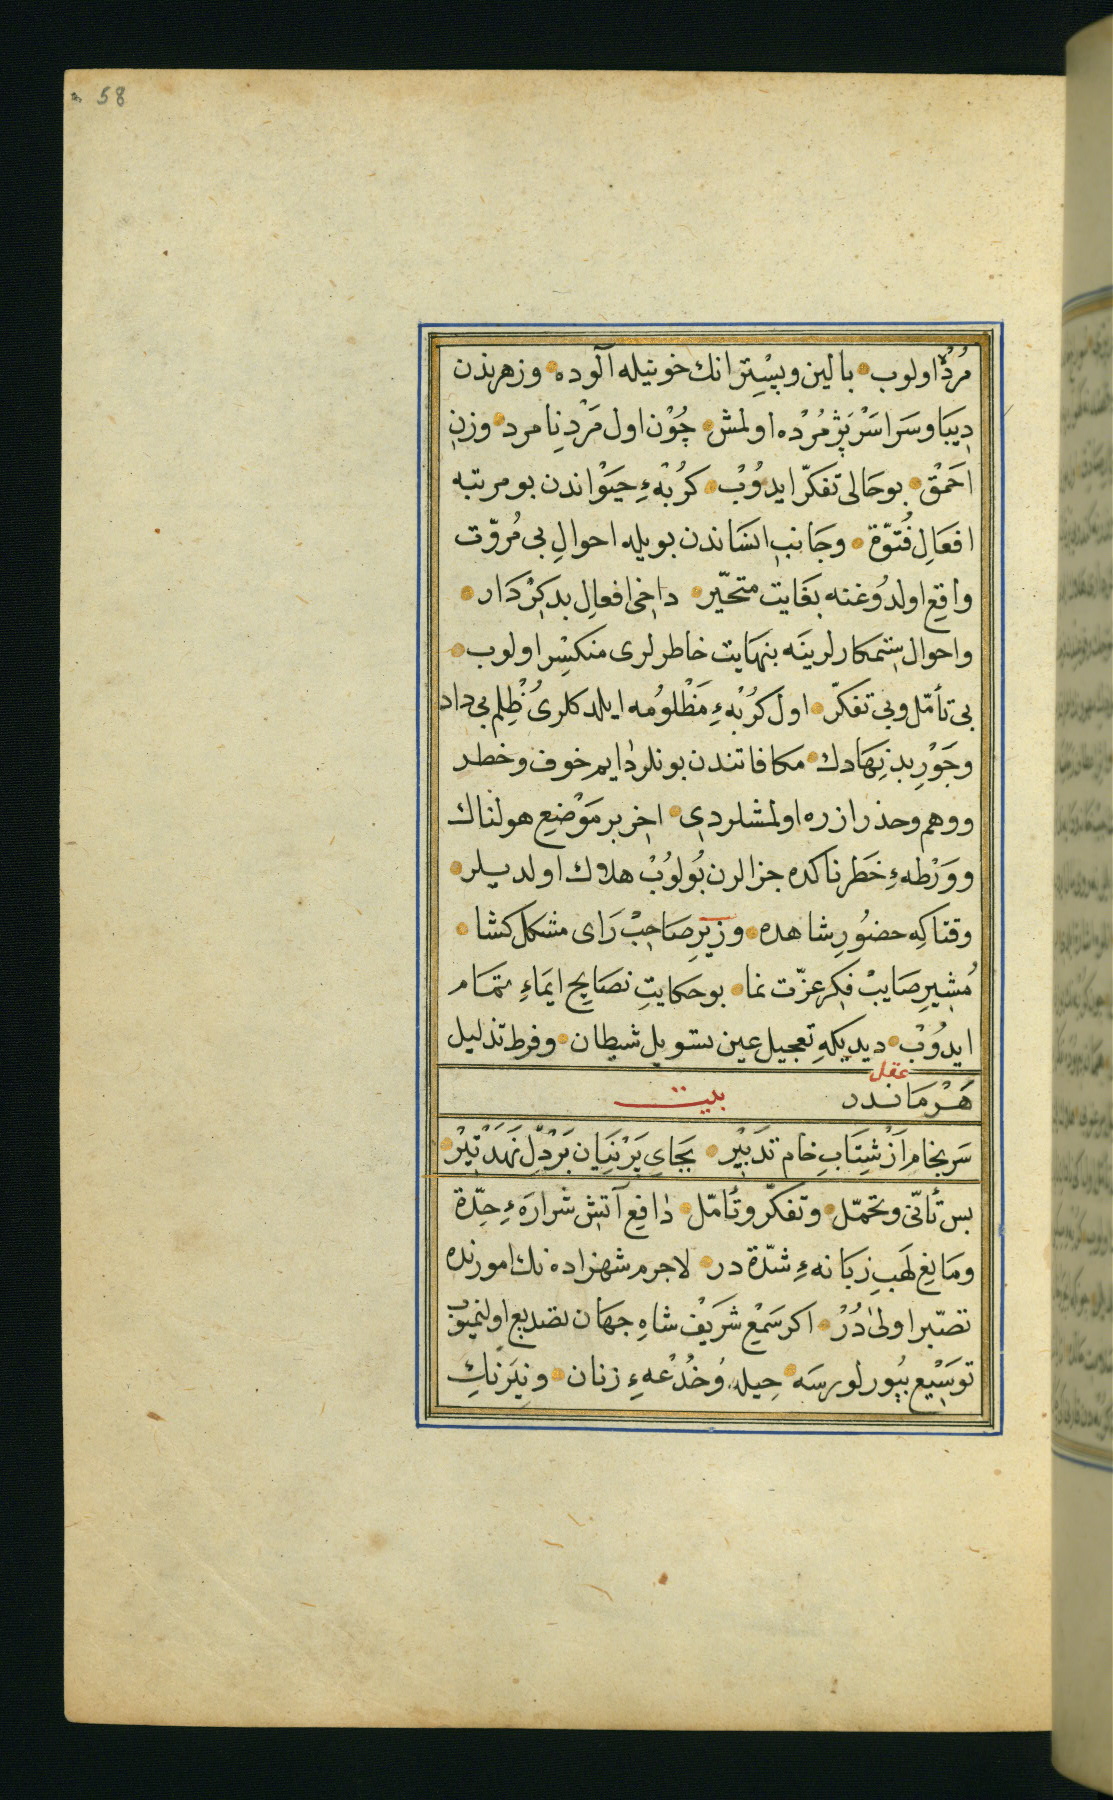 58
مُرْدَه اولوب بالین و بِسْتِر انك خونیله آلوده و زهرندن
دِیبَا و سَراسَرْ پَژْمُرْدَه اولمش چُوْن اول مَرْدِ نامرد و زنِ
احَمْقْ بو حَالی تفکّر ایدوُبْ کُرْبْهءِ حیَوْاندن بو مرتبه
افعَالِ فُتوّة و جَانبِ انسَاندن بویله احوالِ بی مُروّت
واقِع اولدوُغنه بغَایت متحیّر داخی افعالِ بدکِرْدَار
و احوالِ ستمکارلرینَه بنهَایت خاطرلری منکسِر اولوب
بی تأمّل و بی تفکّر اول کُرْبْهءِ مَظْلوُمه ایلدکلری ظُلِم بی داد
و جَوْرِ بدنِهَادك مکافاتندن بونلر دایم خوف و خطر
و وهم و حذر ازره اولمشلردی اخِر بر مَوْضِعِ هولناك
و وَرْطهءِ خَطَرناکده جزالرن بُولوُبْ هلاك اولدیلر
وقتاکه حضوُرِ شاهده وزیرِ صَاحِبْ رَای مشکل کشا
مُشیرِ صَایبْ فِکر عزّت نما بو حکایتِ نصَایح ایمَاءِ تمَام
ایدوُبْ دیدیکه تعجیل عین تسویل شیطان و فرط تذلیل
عقل
هَرْمَاندر بیت
سَر بخام اَزْ شِتَابِ خام تدَبیْر بجَایِ پَرْنیَان بَرْ دِلْ نهَدْ تیْر
بس تأنّی و تحمّل و تفکّر و تأمّل دافِع آتش شرارَهءِ حِدّة
و مَانِعِ لهَبِ زبَانهءِ شدّة در لاجرم شهزاده نك امورنده
تصبّر اولیٰ دُرْ اکر سَمْعِ شرَیفْ شاهِ جهَان تصدیع اولنمیوب
توسَیْع بیُورلورسَه حِیله و خُدْعهءِ زنان و نیَرنكِ